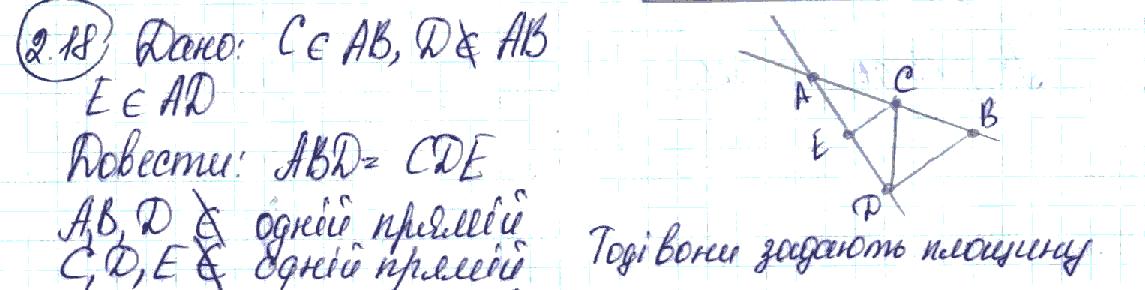 2.18 Дано: C ∈ AB, D ∉ AB
E ∈ AD
Довести: ABD = CDE
A, B, D ∉ одній прямій
C, D, E ∉ одній прямій
A
C
B
E
D
Тоді вони задають площину